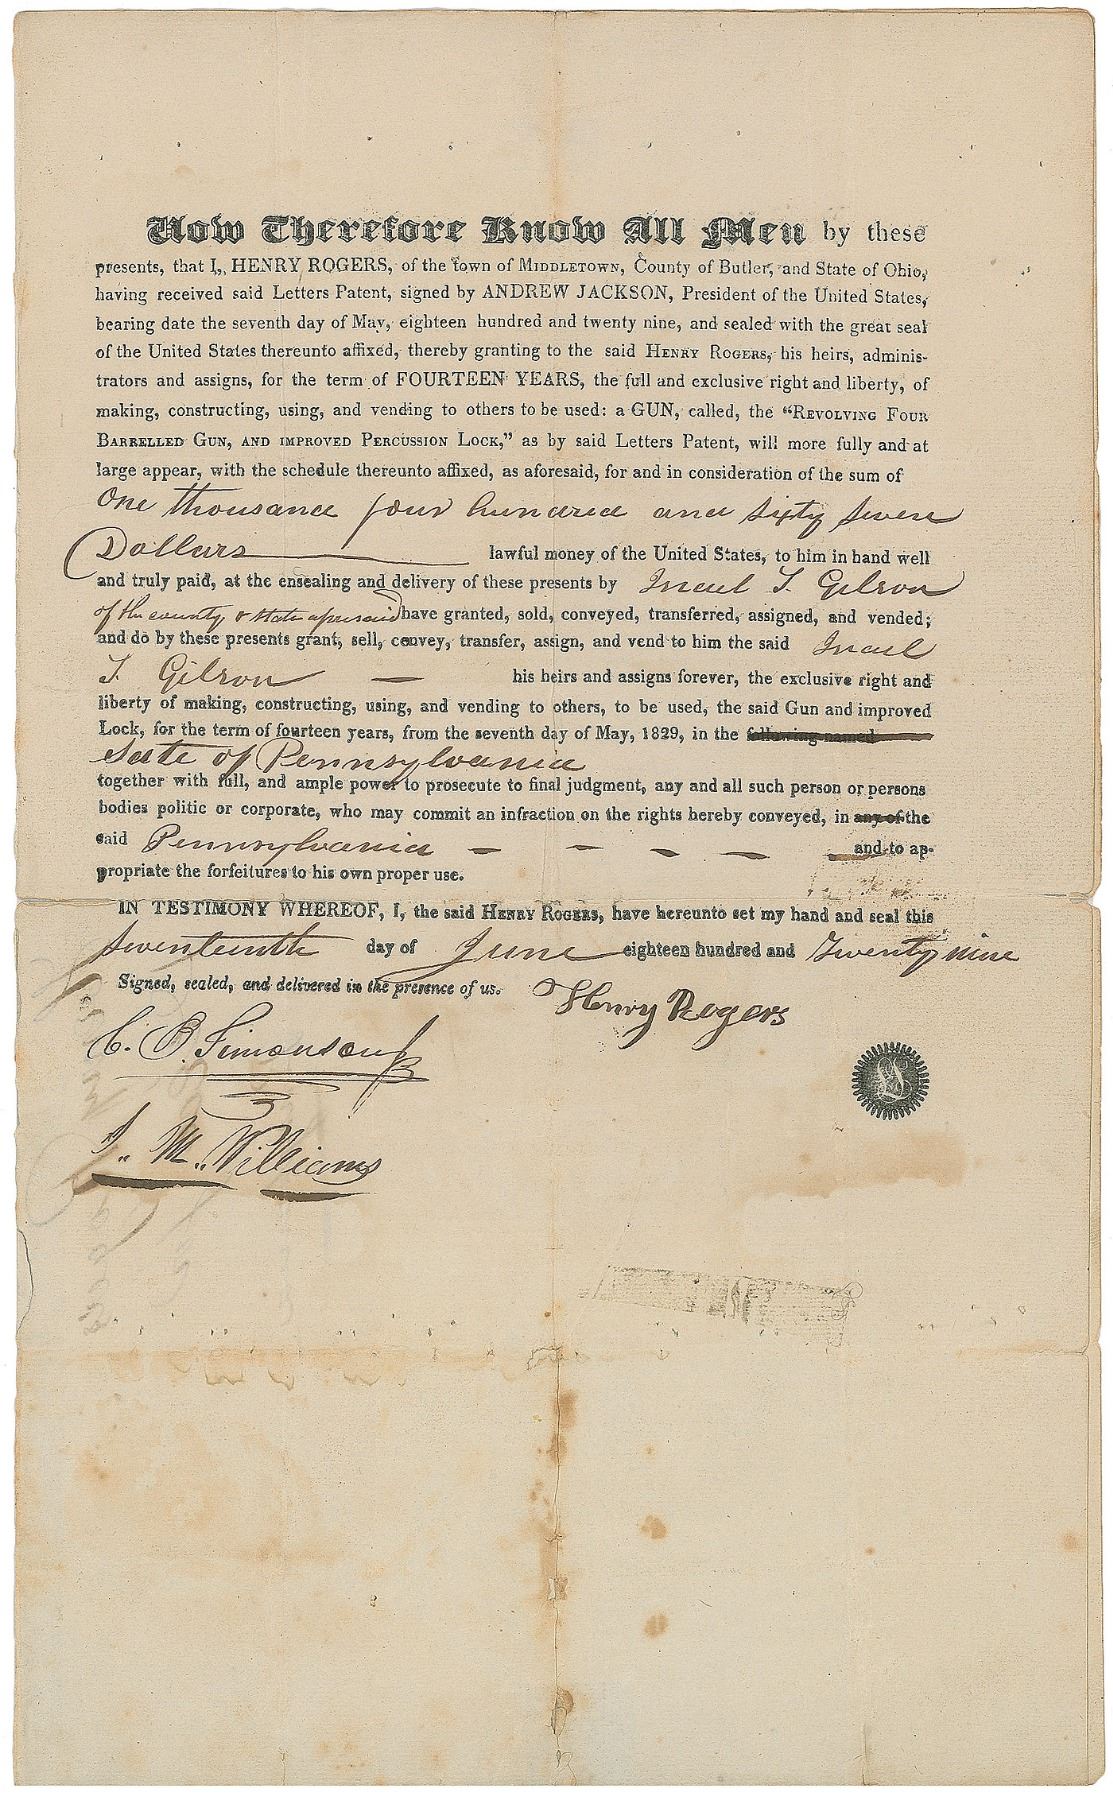 Now Therefore Know All Men by these
presents, that I, HENRY ROGERS, of the town of MIDDLETOWN, County of Butler, and State of Ohio,
having received said Letters Patent, signed by ANDREW JACKSON, President of the United States,
bearing date the seventh day of May, eighteen hundred and twenty nine, and sealed with the great seal
of the United States thereunto affixed, thereby granting to the said HENRY ROGERS, his heirs, adminis-
trators and assigns, for the term of FOURTEEN YEARS, the full and exclusive right and liberty, of
making, constructing, using, and vending to others to be used: a GUN, called, the "REVOLVING FOUR
BARRELLED GUN, AND IMPROVED PERCUSSION LOCK," as by said Letters Patent, will more fully and at
large appear, with the schedule thereunto affixed, as aforesaid, for and in consideration of the sum of
One thousand four hundred and sixty seven
Dollars lawful money of the United States, to him in hand well
and truly paid, at the ensealing and delivery of these presents by Israel T. Gibson
of the county & state aforesaid have granted, sold, conveyed, transferred, assigned, and vended;
and do by these presents grant, sell, convey, transfer, assign, and vend to him the said Israel
T. Gibson — his heirs and assigns forever, the exclusive right and
liberty of making, constructing, using, and vending to others, to be used, the said Gun and improved
Lock, for the term of fourteen years, from the seventh day of May, 1829, in the following named
State of Pennsylvania
together with full, and ample power to prosecute to final judgment, any and all such person or persons
bodies politic or corporate, who may commit an infraction on the rights hereby conveyed, in any of the
said Pennsylvania — — — — and to ap-
propriate the forfeitures to his own proper use.
IN TESTIMONY WHEREOF, I, the said HENRY ROGERS, have hereunto set my hand and seal this
Seventeenth day of June eighteen hundred and Twenty nine
Signed, sealed, and delivered in the presence of us. Henry Rogers
C. B. Simonson
J. M. Williams